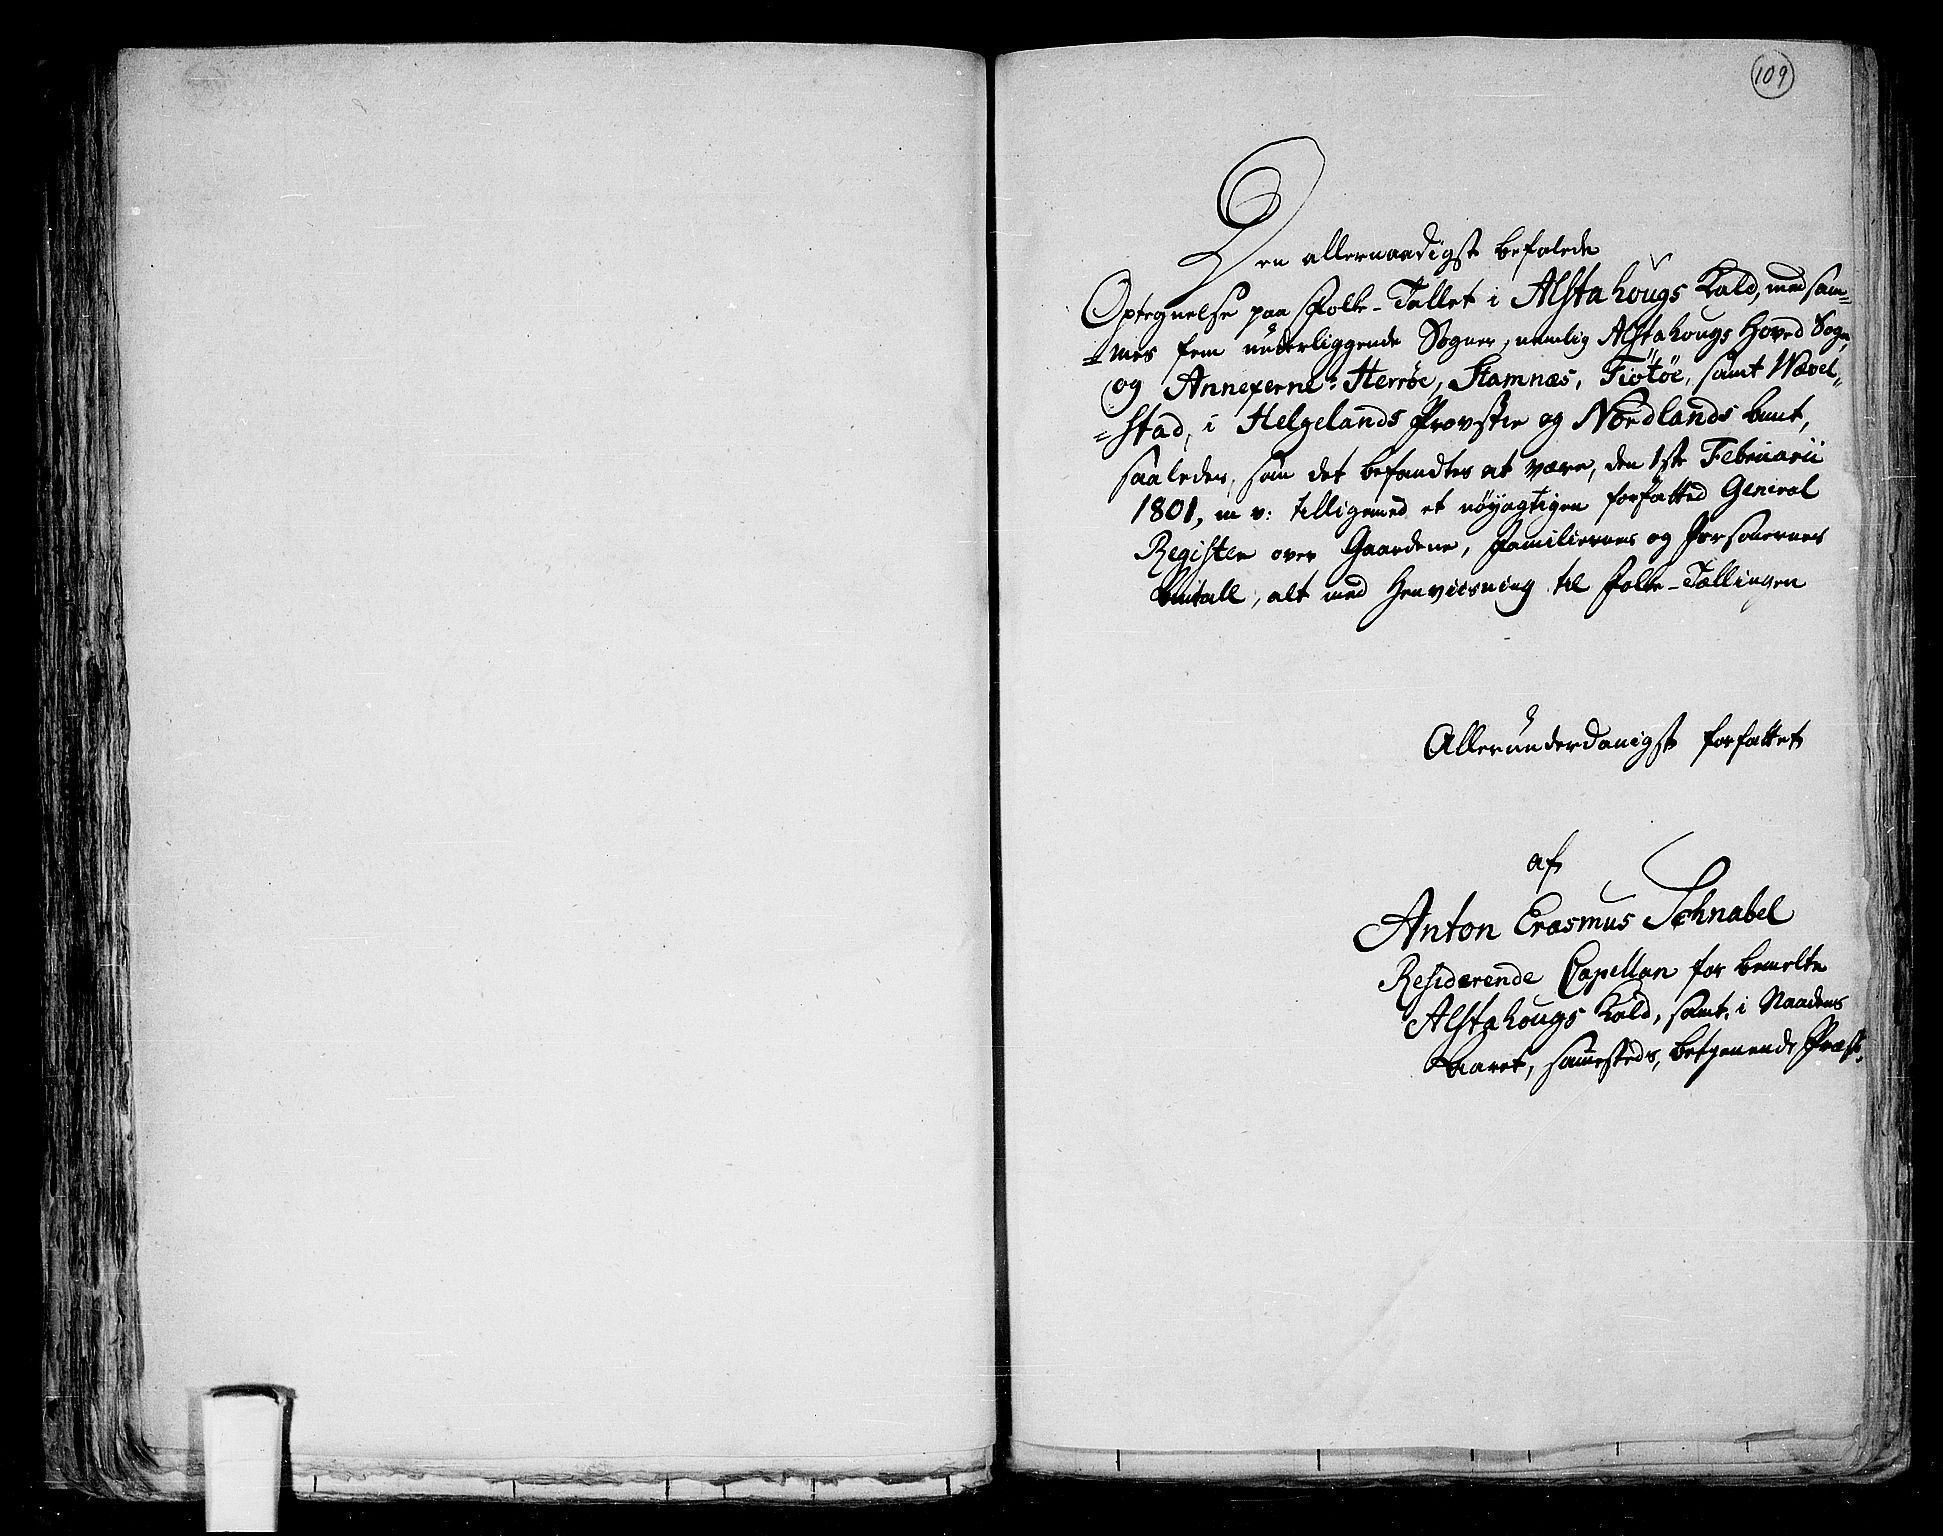 109
Den allernaadigst befalede
Optegnelse paa Folke-Tallet i Alstahougs Kald, med sam=
=mes fem underliggende Sogner, nemlig Alstahougs Hoved Sogn,
og Annexerne: Herröe, Stamnæs, Tiötöe, samt Wævel=
=stad, i Helgelands Provstie og Nordlands Amt,
saaledes, som det befandtes at være, den 1ste Februarii
1801, m v: tilligemed et nöyagtigen forfatted General
Register over Gaardene, Familiernes og Personernes
Antall, alt med Henviisning til Folke-Tællingen
Allerunderdanigst forfattet
af
Anton Erasmus Schnabel
Residerende Capellan for bemelte
Alstahougs Kald, samt, i Naadens
Aaret, sammesteds, betjenende Præst.